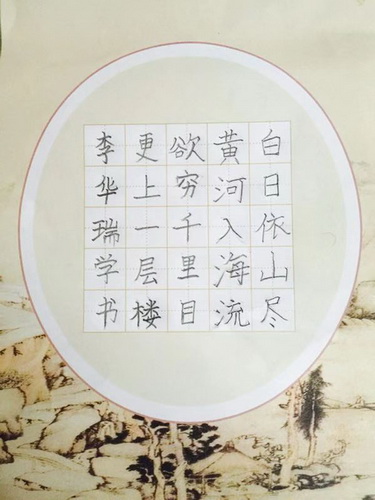 白日依山尽
黄河入海流
欲穷千里目
更上一层楼
李华瑞学书